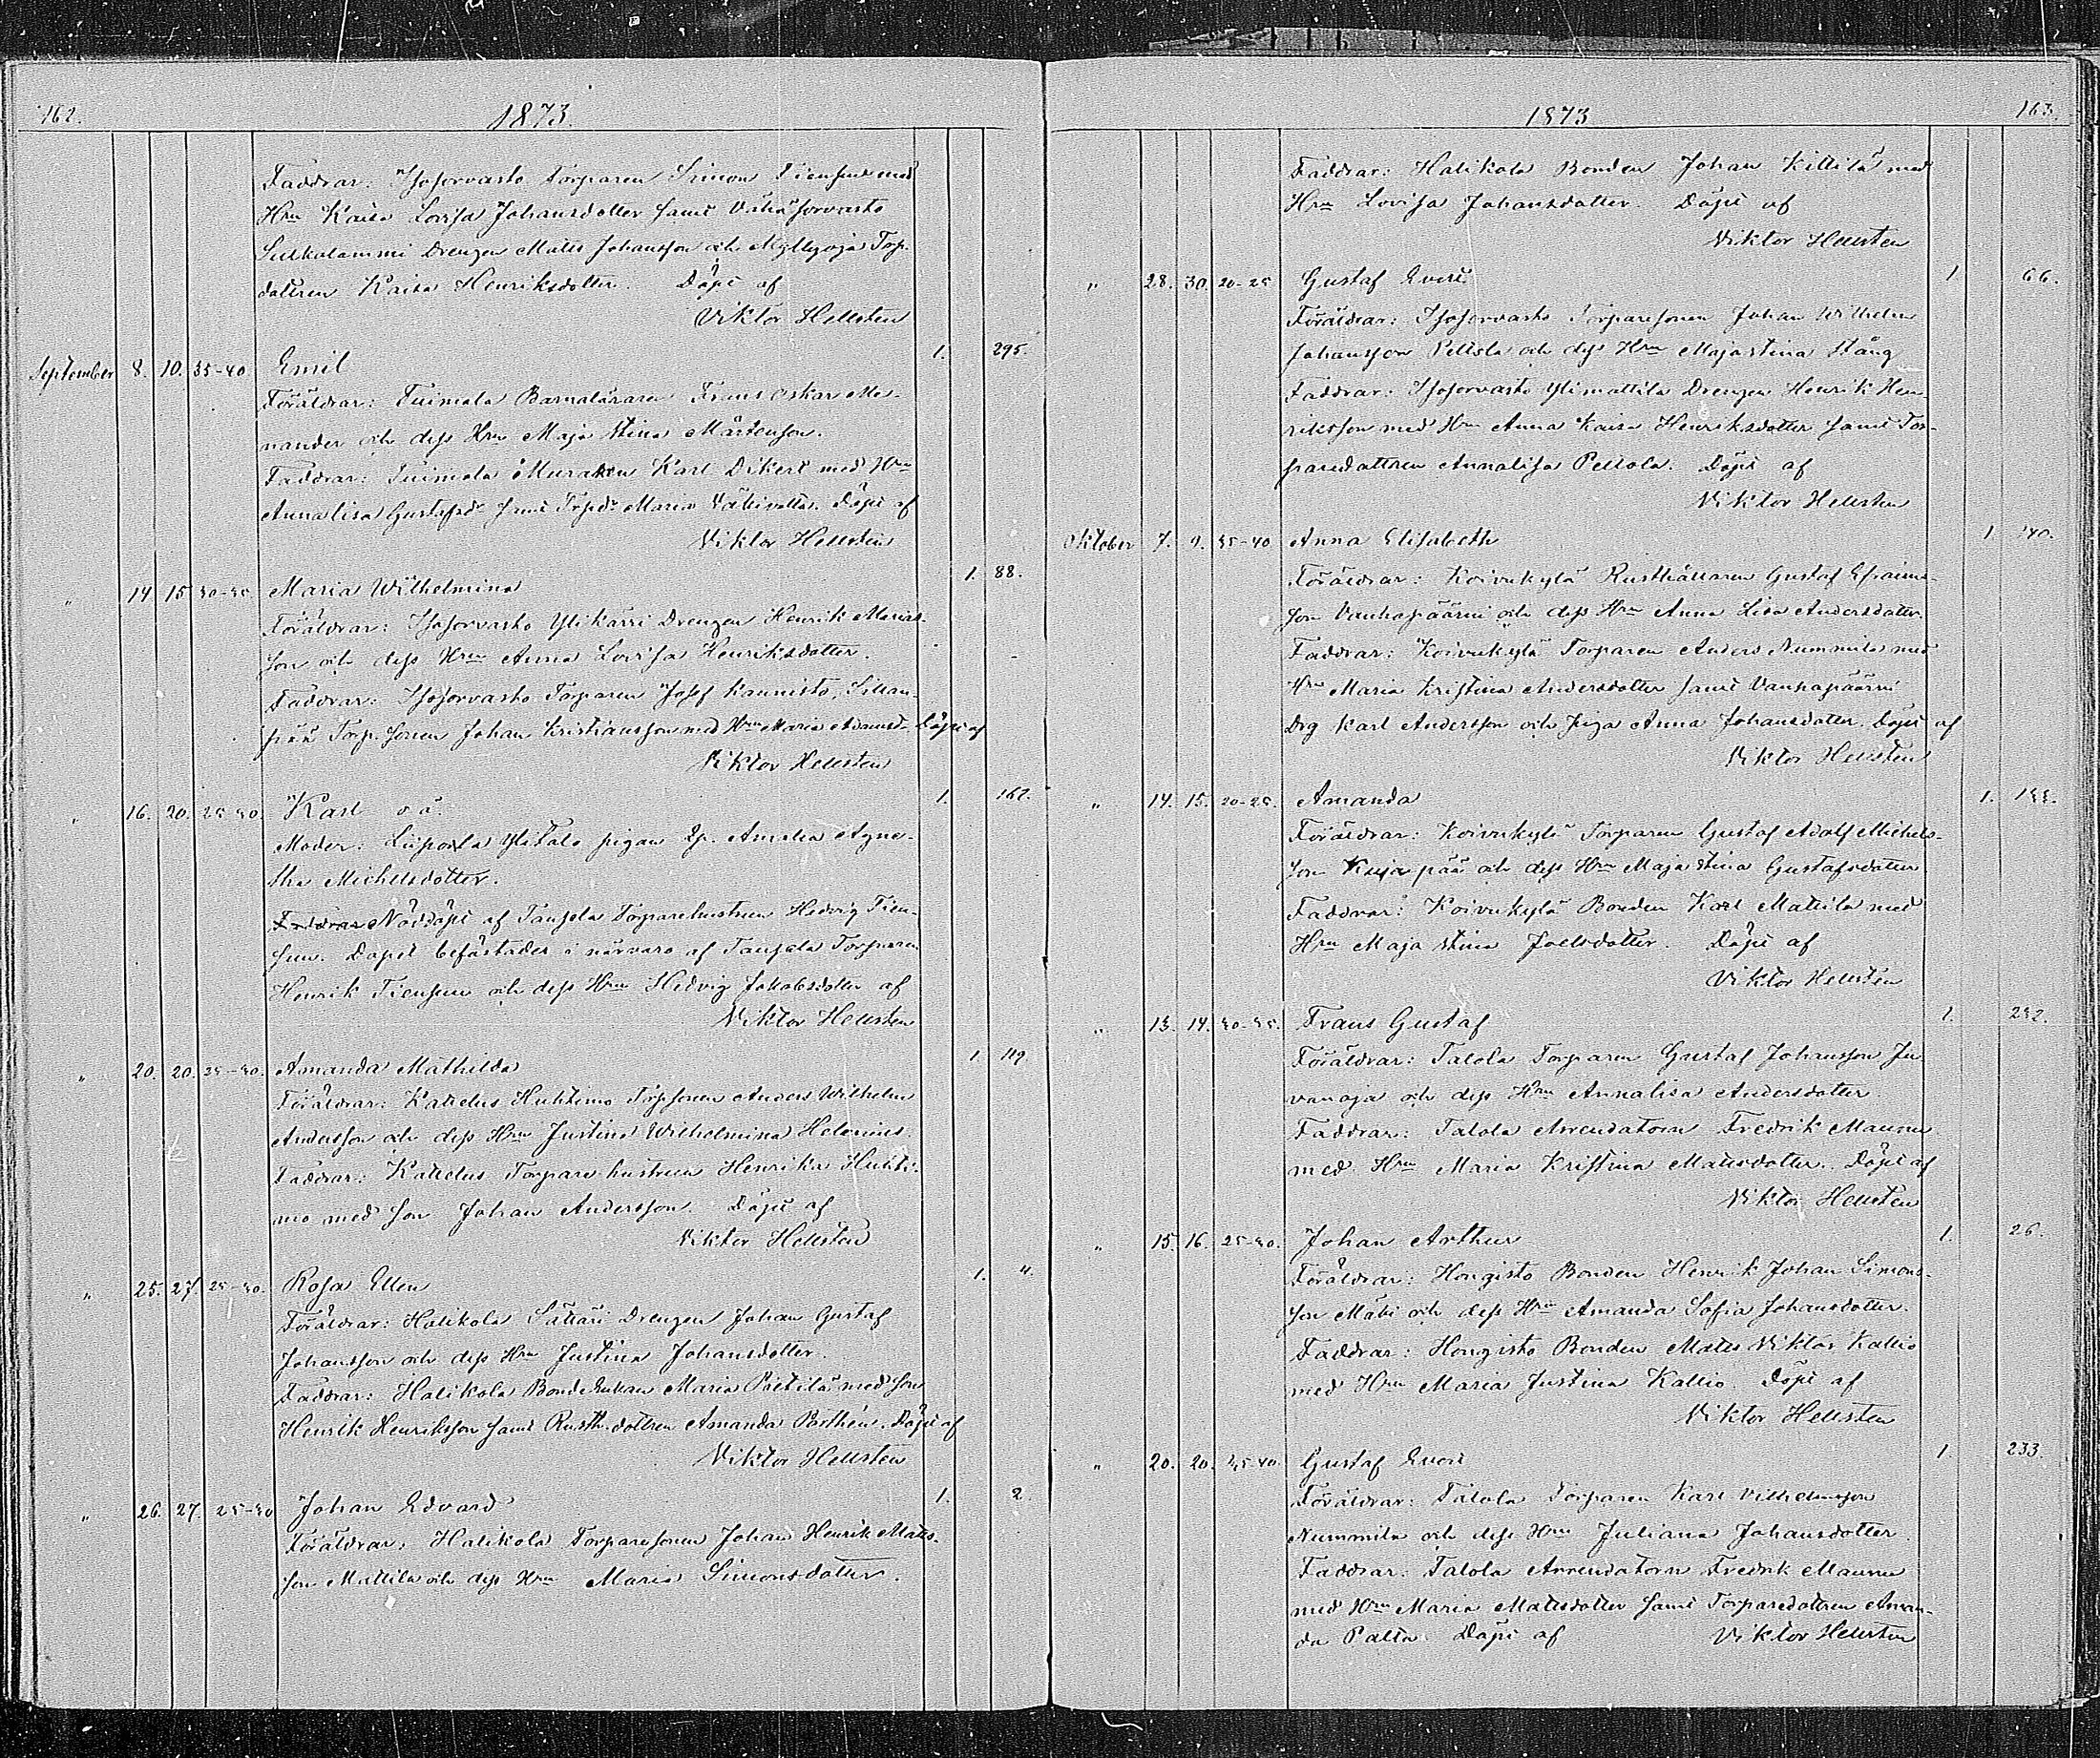 162. 1873.
Faddrar: Isosorvasto Torparen Simon Tiensuu med
Hrn Kaisa Lovisa Johansdotter samt Vähäsorvasto
Sulkalammi Drengen Matts Johansson och Myllyoja Torp.
dottren Kaisa Henriksdotter. Döpt af
Viktor Hellsten
September 8. 10. 35-40 Emil 1. 295.
Föräldrar: Tuimala Barnaläraren Frans Oskar Me-
nander och dess Hru Maja Stina Mårtenson.
Faddrar: Tuimala Muraren Karl Dikert med Hru
Annalisa Gustafsdr samt Torpdr Maria Väkivalta. Döpt af
Viktor Hellsten
" 14 15 30-35. Maria Wilhelmina 1. 88.
Föräldrar: Isosorvasto Ylikärri Drengen Henrik Mårtens-
son och dess Hru Anna Lovisa Henriksdotter.
Faddrar: Isosorvasto Torparen Josef Kaunisto, Sillan-
pää Torp. sonen Johan Kristiansson med Hru Maria Adamsd. Döpt af
Viktor Hellsten
" 16. 20. 25-30 Karl o.ä. 1. 162.
Moder: Liipola Ylitalo pigan Amalia Agne-
tha Michelsdotter.
Faddrar Nöddöpt af Tanssla Torparehustrun Hedvig Tien-
suu. Dopet befästades i närvaro af Tanssla Torparen
Henrik Tiensuu och dess Hru Hedvig Jakobsdotter af
Viktor Hellsten
" 20. 20. 25-30. Amanda Mathilda 1. 119.
Föräldrar: Katelus Huhtimo Torpsonen Anders Wilhelm
Andersson och dess Hru Justina Wilhelmina Helenius.
Faddrar: Katelus Torpare hustrun Henrika Huhti-
mo med son Johan Andersson. Döpt af
Viktor Hellsten
" 25. 27. 25-30. Rosa Ellen 1. 4.
Föräldrar: Halikola Sättäri Drengen Johan Gustaf
Johansson och dess Hru Justina Johansdotter.
Faddrar: Halikola Bonde Enkan Maria Pietilä med son
Henrik Henriksson samt Rusth.dottren Amanda Porthén. Döpt af
Viktor Hellsten
" 26. 27. 25-30 Johan Edvard 1. 2.
Föräldrar: Halikola Torparesonen Johan Henrik Matts-
son Mattila och dess Hru Maria Simonsdotter.
1873 163.
Faddrar: Halikola Bonden Johan Kittilä med
Hru Lovisa Johansdotter. Döpt af
Viktor Hellsten
" 28. 30. 20-25 Gustaf Evert 1 66.
Föräldrar: Isosorvasto Torparesonen Johan Wilhelm
Johansson Peltola och dess Hru Majastina Stång
Faddrar: Isosorvasto Ylimattila Drengen Henrik Hen-
riksson med Hru Anna Kaisa Henriksdotter samt Tor-
paredottren Annalisa Peltola. Döpt af
Viktor Hellsten
Oktober 7. 9. 35-40 Anna Elisabeth 1 140.
Föräldrar: Koivukylä Rusthållaren Gustaf Efraims-
son Vanhapäärni och dess Hru Anna Lisa Andersdotter.
Faddrar: Koivukylä Torparen Anders Nummila med
Hru Maria Kristina Andersdotter samt Vanhapäärni
Drg Karl Andersson och Piga Anna Johansdotter. Döpt af
Viktor Hellsten
" 14. 15. 20-25. Amanda 1.
Föräldrar: Koivukylä Torparen Gustaf Adolf Michels-
son Kujapää och dess Hru Maja Stina Gustafsdotter
Faddrar: Koivukylä Bonden Karl Mattila med
Hru Maja Stina Joelsdotter. Döpt af
Viktor Hellsten
" 13. 14. 30-35. Frans Gustaf 1. 232.
Föräldrar: Talola Torparen Gustaf Johansson Ju-
vanoja och dess Hru Annalisa Andersdotter
Faddrar: Talola Arrendatorn Fredrik Maunu
med Hru Maria Kristina Mattsdotter. Döpt af
Viktor Hellsten
" 15. 16. 25-30. Johan Arthur 1. 26.
Föräldrar: Hongisto Bonden Henrik Johan Simons-
son Mäki och dess Hru Amanda Sofia Johansdotter.
Faddrar: Hongisto Bonden Matts Viktor Kallio
med Hru Maria Justina Kallio. Döpt af
Viktor Hellsten
" 20. 20. 35-40. Gustaf Evert 1. 233.
Föräldrar: Talola Torparen Karl Vilhelmsson
Nummila och dess Hru Juliana Johansdotter.
Faddrar: Talola Arrendatorn Fredrik Maunu
med Hru Maria Mattsdotter samt Torparedottren Aman-
da Palta. Döpt af Viktor Hellsten